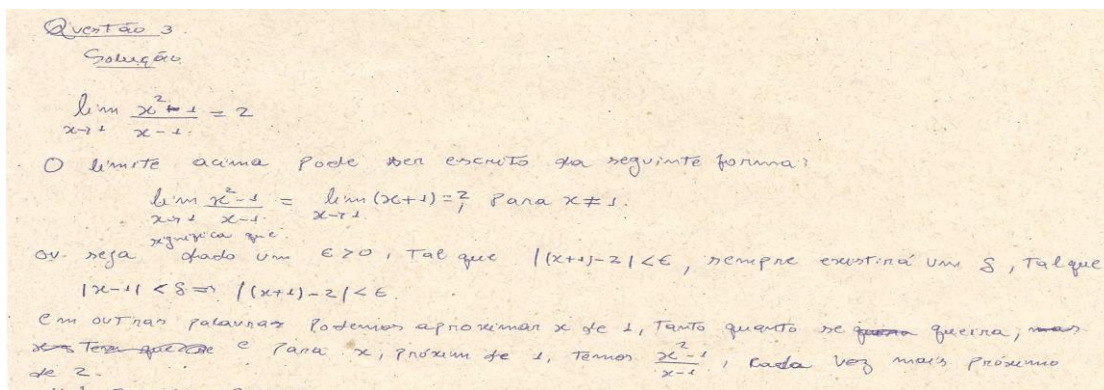 Questão 3.
Solução
lim x²-1 / x-1 = 2
x→1
O limite acima pode ser escrito da seguinte forma:
lim x²-1 / x-1 = lim (x+1) = 2, para x ≠ 1.
x→1 x→1
significa que
ou seja dado um ε>0, tal que |(x+1)-2|<ε, sempre existirá um δ, tal que
|x-1|<δ ⇒ |(x+1)-2|<ε.
em outras palavras podemos aproximar x de 1, tanto quanto se queira,
e para x, próxim de 1, temos x²-1 / x-1, cada vez mais próximo
de 2.